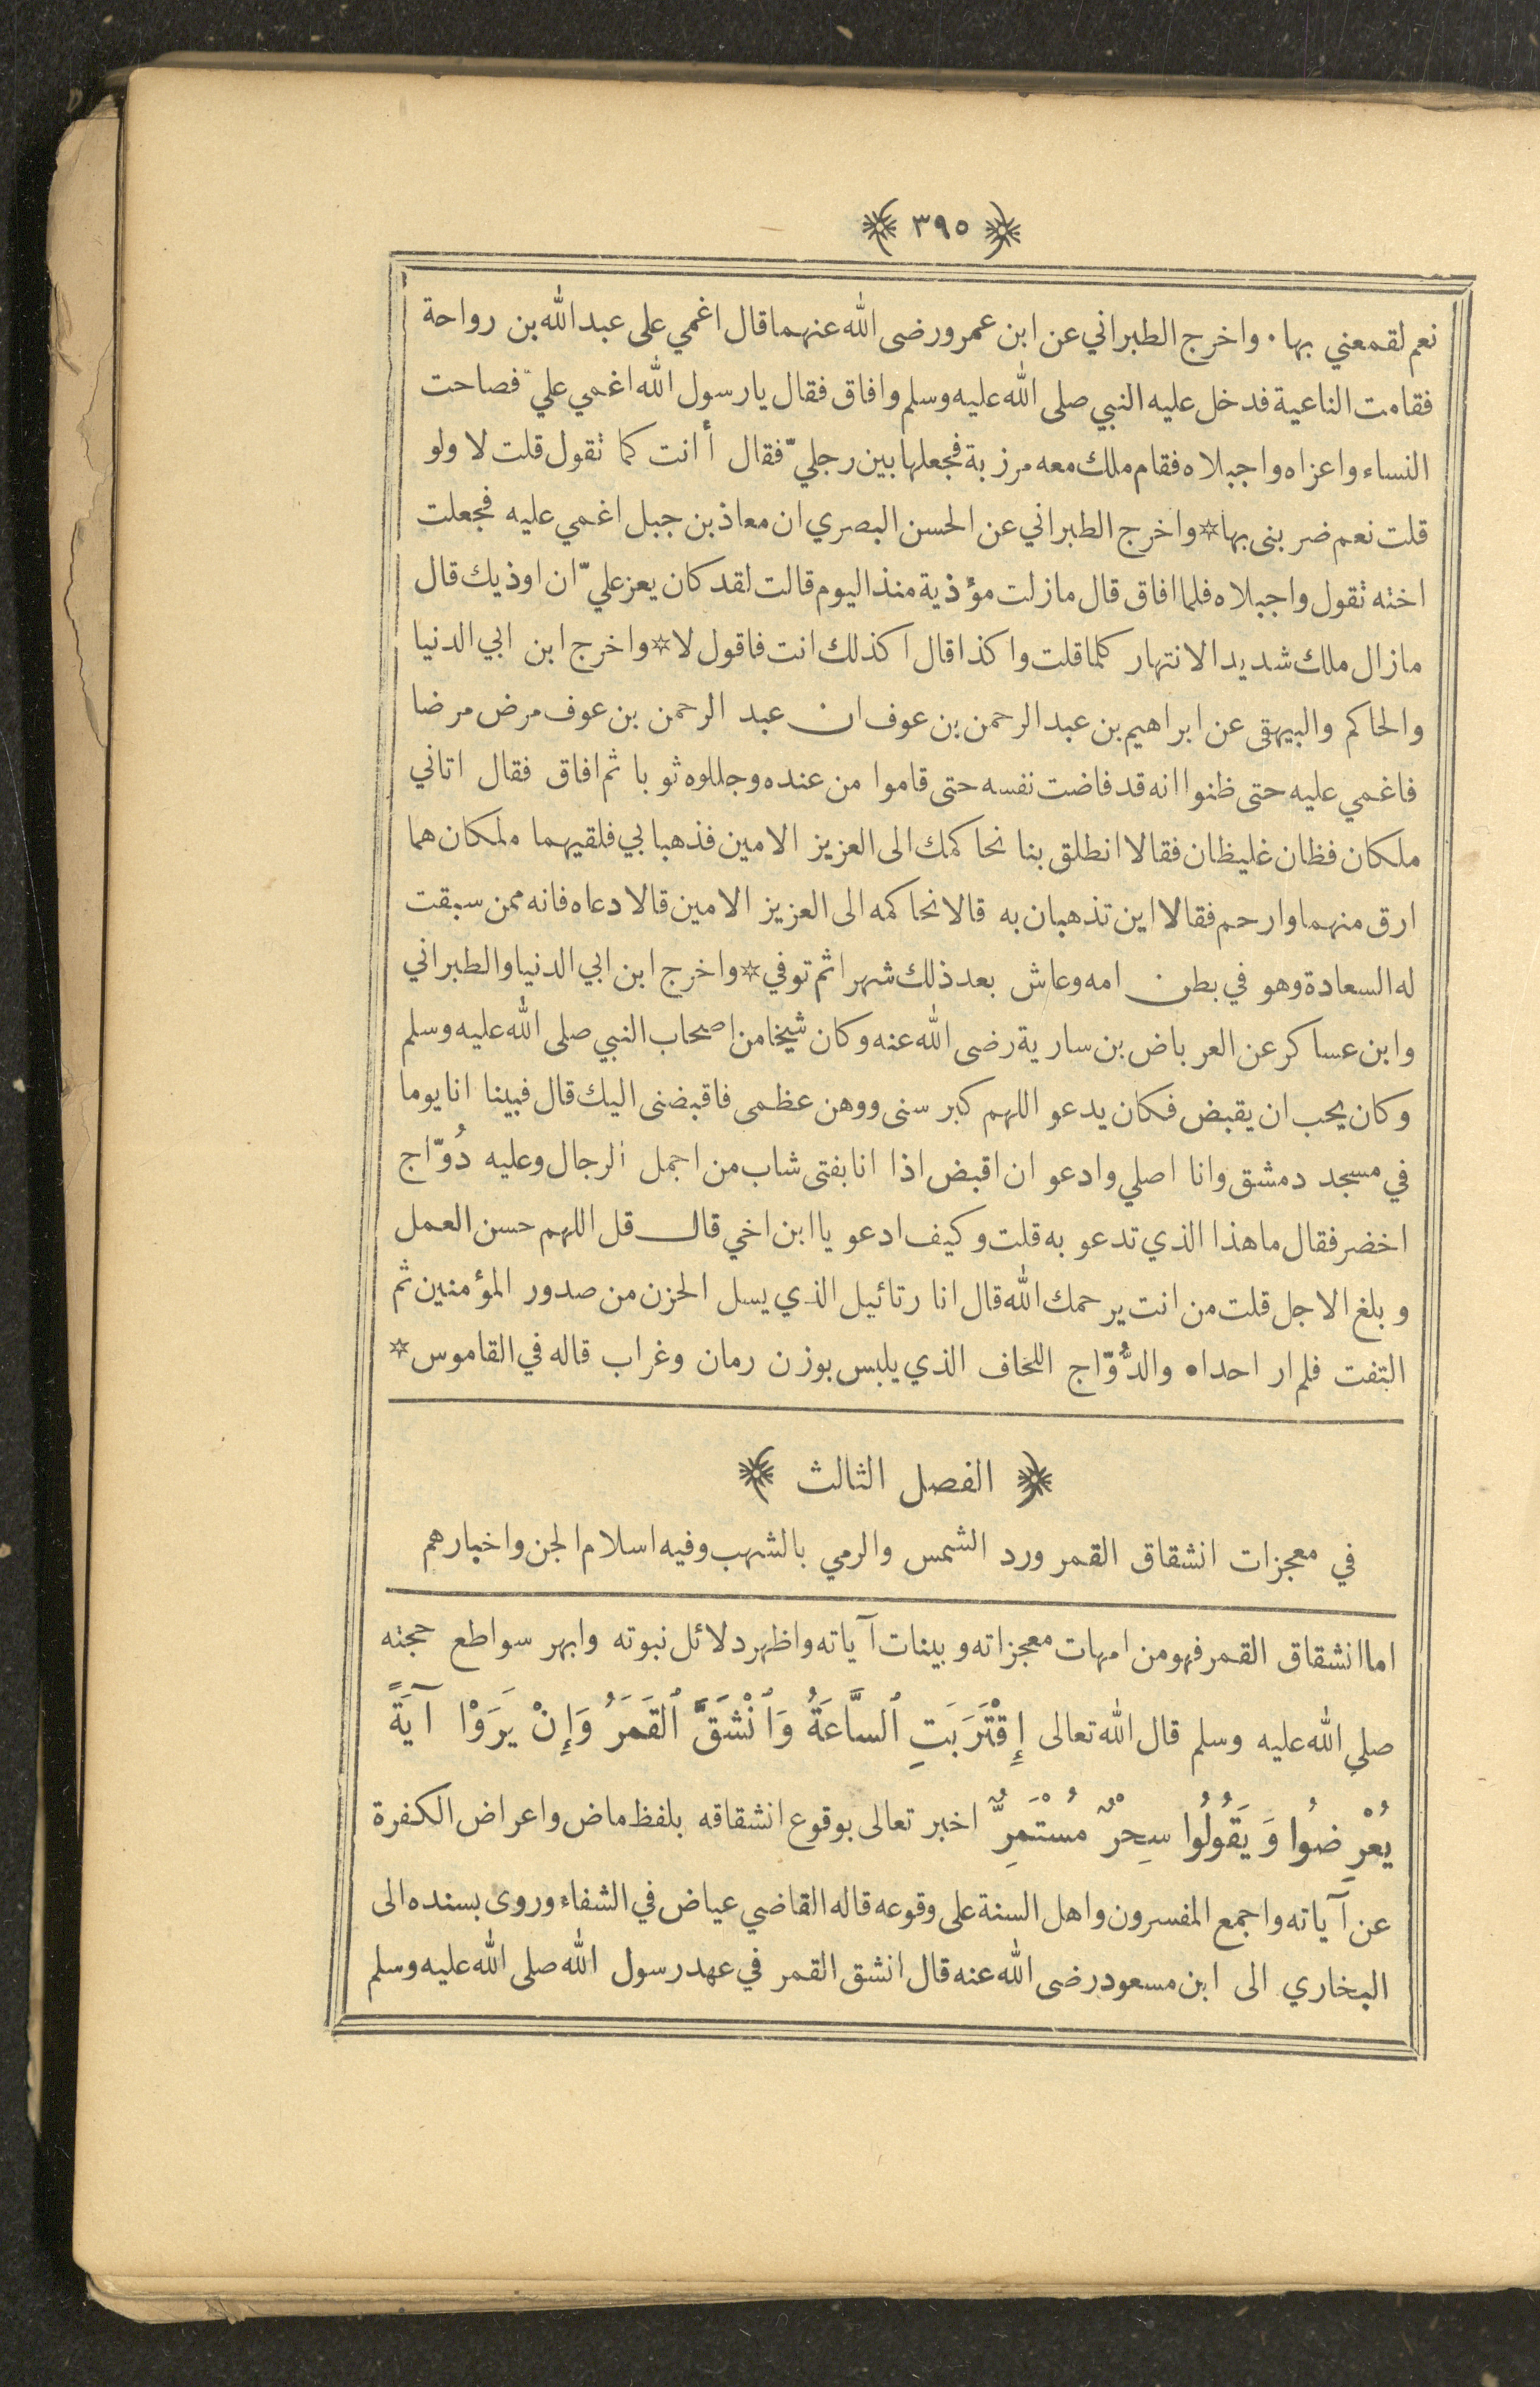 ﴿ ٣٩٥ ﴾
نعم لقمعني بها . واخرج الطبراني عن ابن عمرو رضى الله عنهما قال اغمي على عبد الله بن رواحة
فقامت الناعية فدخل عليه النبي صلى الله عليه وسلم وافاق فقال يارسول الله اغمي عليّ فصاحت
النساء واعزاه واجبلاه فقام ملك معه مرزبة فجعلها بين رجليّ فقال أ انت كما تقول قلت لا ولو
قلت نعم ضربنى بها * واخرج الطبراني عن الحسن البصري ان معاذ بن جبل اغمي عليه فجعلت
اخته تقول واجبلاه فلما افاق قال مازلت مؤذية منذ اليوم قالت لقد كان يعز عليّ ان اوذيك قال
مازال ملك شديد الانتهار كلما قلت واكذا قال اكذلك انت فاقول لا * واخرج ابن ابي الدنيا
والحاكم والبيهقى عن ابراهيم بن عبد الرحمن بن عوف ان عبد الرحمن بن عوف مرض مرضا
فاغمي عليه حتى ظنوا انه قد فاضت نفسه حتى قاموا من عنده وجللوه ثوبا ثم افاق فقال اتاني
ملكان فظان غليظان فقالا انطلق بنا نحاكمك الى العزيز الامين فذهبا بي فلقيهما ملكان هما
ارق منهما وارحم فقالا اين تذهبان به قالا نحاكمه الى العزيز الامين قالا دعاه فانه ممن سبقت
له السعادة وهو في بطن امه وعاش بعد ذلك شهرا ثم توفي * واخرج ابن ابي الدنيا والطبراني
وابن عساكر عن العرباض بن سارية رضى الله عنه وكان شيخا من اصحاب النبي صلى الله عليه وسلم
وكان يحب ان يقبض فكان يدعو اللهم كبر سنى ووهن عظمى فاقبضنى اليك قال فبينا انا يوما
في مسجد دمشق وانا اصلي وادعو ان اقبض اذا انا بفتى شاب من اجمل الرجال وعليه دُوّاج
اخضر فقال ما هذا الذي تدعو به قلت وكيف ادعو يا ابن اخي قال قل اللهم حسن العمل
وبلغ الاجل قلت من انت يرحمك الله قال انا رتائيل الذي يسل الحزن من صدور المؤمنين ثم
التفت فلم ار احدا ه والدُّوّاج اللحاف الذي يلبس بوزن رمان وغراب قاله في القاموس *
﴿ الفصل الثالث ﴾
في معجزات انشقاق القمر ورد الشمس والرمي بالشهب وفيه اسلام الجن واخبارهم
اما انشقاق القمر فهو من امهات معجزاته وبينات آياته واظهر دلائل نبوته وابهر سواطع حجته
صلى الله عليه وسلم قال الله تعالى إِقْتَرَبَتِ ٱلسَّاعَةُ وَٱنْشَقَّ ٱلقَمَرُ وَإِنْ يَرَوْا آيَةً
يُعْرِضُوا وَيَقُولُوا سِحْرٌ مُسْتَمِرٌّ اخبر تعالى بوقوع انشقاقه بلفظ ماض واعراض الكفرة
عن آياته واجمع المفسرون واهل السنة على وقوعه قاله القاضي عياض في الشفاء وروى بسنده الى
البخاري الى ابن مسعود رضى الله عنه قال انشق القمر في عهد رسول الله صلى الله عليه وسلم